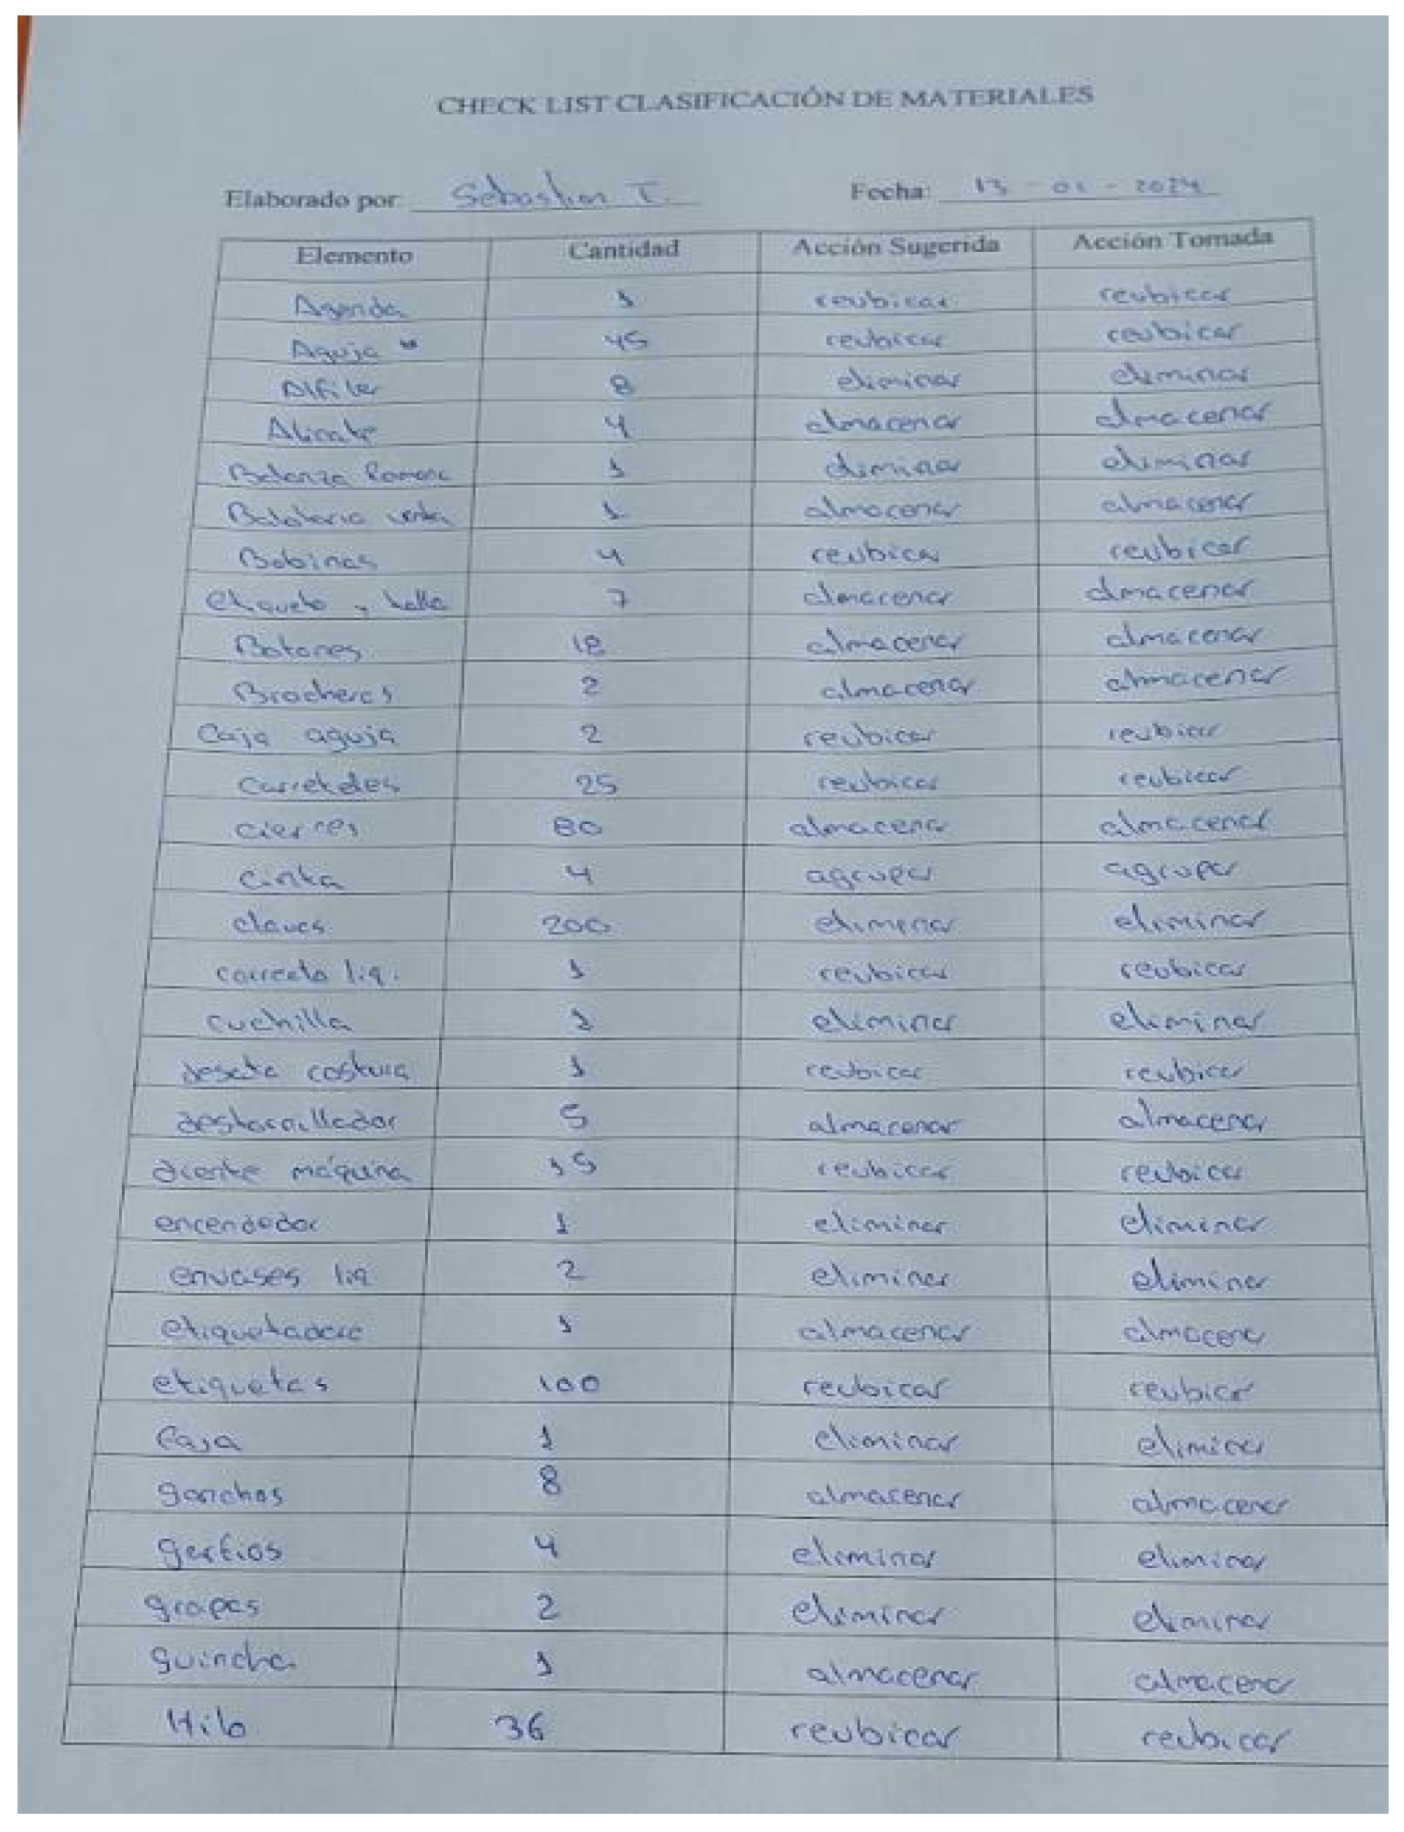 CHECK LIST CLASIFICACIÓN DE MATERIALES
Elaborado por: Sebastian T. Fecha: 13 - 01 - 2024
Elemento Cantidad Acción Sugerida Acción Tomada
Agenda 1 reubicar reubicar
Aguja 45 reubicar reubicar
Alfiler 8 eliminar eliminar
Alicate 4 almacenar almacenar
Balanza Romana 1 eliminar eliminar
Balotario venta 1 almacenar almacenar
Bobinas 4 reubicar reubicar
etiqueta y talla 7 almacenar almacenar
Botones 18 almacenar almacenar
Brocheras 2 almacenar almacenar
Caja aguja 2 reubicar reubicar
Carreteles 25 reubicar reubicar
cierres 80 almacenar almacenar
cinta 4 agrupar agrupar
clavos 200 eliminar eliminar
correcto liq. 1 reubicar reubicar
cuchilla eliminar eliminar
desata costura 1 reubicar reubicar
destornillador 5 almacenar almacenar
máquina 15 reubicar reubicar
encendedor 1 eliminar eliminar
envases liq. 2 eliminar eliminar
etiquetadora 1 almacenar almacenar
etiquetas 100 reubicar reubicar
1 eliminar eliminar
ganchos 8 almacenar almacenar
garfios 4 eliminar eliminar
grapas 2 eliminar eliminar
guincha 1 almacenar almacenar
Hilo 36 reubicar reubicar